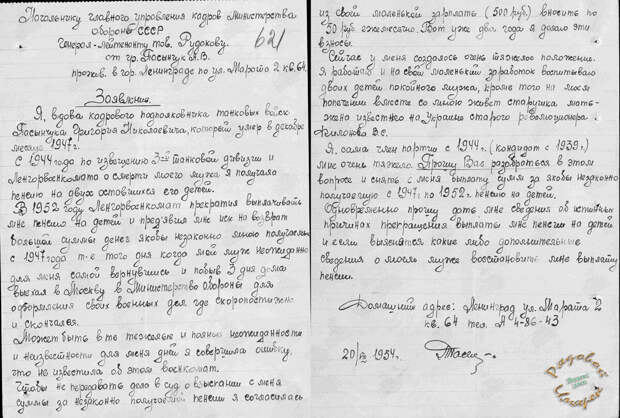 Начальнику главного управления кадров Министерства
обороны СССР
Генерал-лейтенанту тов. Рудокову.
621
от гр. Посынчук А.В.
прожив. в гор. Ленинграде по ул. Марата 2 к в.64.
Заявление.
Я, вдова кадрового подполковника танковых войск
Посынчука Григория Николаевича, который умер в декабре
месяце 1947г.
С 1944 года по извещению 3-ей танковой дивизии и
Ленгорвоенкомата о смерти моего мужа я получала
пенсию на двух оставшихся его детей.
В 1952 году Ленгорвоенкомат прекратил выплачивать
мне пенсию на детей и предъявил мне иск на возврат
большой суммы денег якобы незаконно мною полученных
с 1947 года т-е того дня когда мой муж неожиданно
для меня самой вернувшись и побыв 3 дня дома
выехал в Москву в Министерство обороны для
оформления своих военных дел где скоропостижно
и скончался.
Может быть в те тяжелые и полные неожиданности
и неизвестности для меня дни я совершила ошибку,
что не известила об этом военкомат.
Чтобы не передавать дело в суд о взыскании с меня
суммы за незаконно получаемой пенсии я согласилась
из свой маленькой зарплаты (500 руб) вносить по
50 руб ежемесячно. Вот уже два года я делаю эти
взносы.
Сейчас у меня создалось очень тяжелое положение.
Я работаю и на свой маленький заработок воспитываю
двоих детей покойного мужа, кроме того на моем
попечении вместе со мною живет старушка мать-
жена известного на Украине старого революционера.
Филонова В.С.
Я, сама член партии с 1944г. (кандидат с 1939г.)
мне очень тяжело. Прошу Вас разобраться в этом
вопросе и снять с меня выплату сумм за якобы незаконно
получаемую с 1947г по 1952г. пенсию на детей.
Одновременно прошу дать мне сведения об истинных
причинах прекращения выплаты мне пенсии на детей
и если выяснятся какие либо дополнительные
сведения о моем муже восстановите мне выплату
пенсии.
Домашний адрес: Ленинград ул. Марата 2
кв. 64 тел А 4-86-43
1954г.
Рядовой